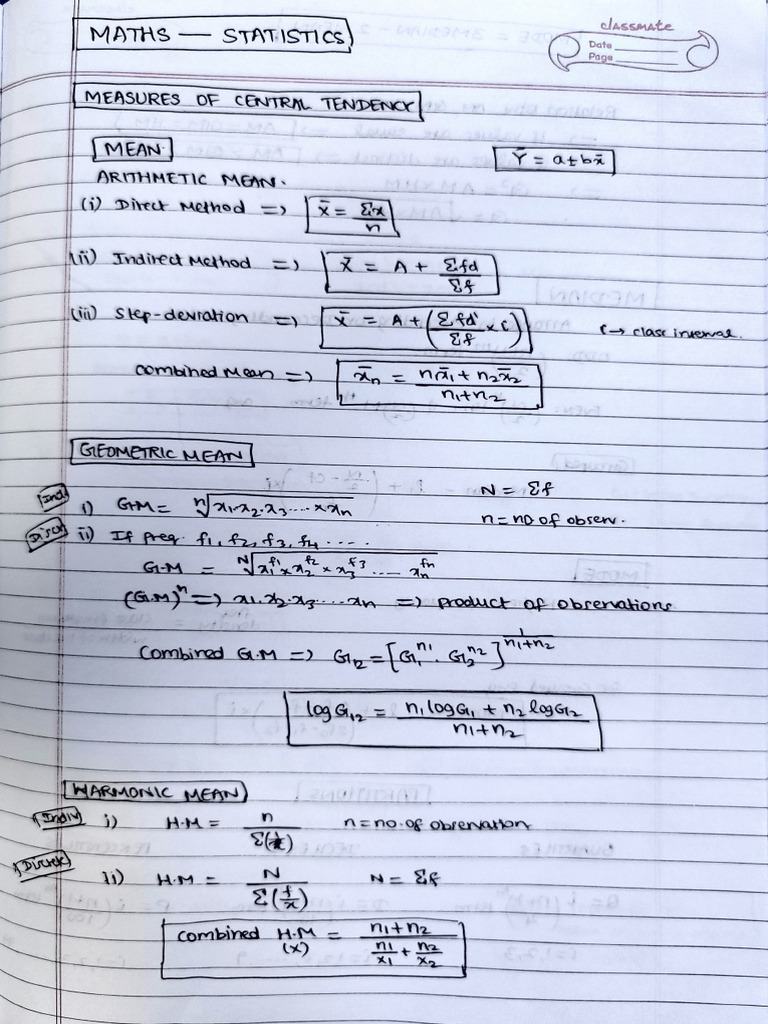 MATHS — STATISTICS
classmate
Date
Page
MEASURES OF CENTRAL TENDENCY
MEAN.
Ȳ = a ± bx̄
ARITHMETIC MEAN.
(i) Direct Method => x̄ = Σx/n
(ii) Indirect Method => x̄ = A + Σfd/Σf
(iii) Step-deviation => x̄ = A + (Σfd'/Σf × C) C → class interval.
Combined Mean => x̄n = n₁x̄₁ + n₂x̄₂/n₁+n₂
GEOMETRIC MEAN
Ind i) G.M = ⁿ√x₁.x₂.x₃....×xn
N = Σf
n = no of observ.
Discr ii) If freq. f₁, f₂, f₃, f₄ ....
G.M = ᴺ√x₁^f₁ × x₂^f₂ × x₃^f₃ .... xn^fn
(G.M)ⁿ => x₁.x₂.x₃....xn => product of observations
Combined G.M => G₁₂ = [G₁^n₁ . G₂^n₂]^1/n₁+n₂
log G₁₂ = n₁ log G₁ + n₂ log G₂/n₁+n₂
HARMONIC MEAN
Indiv i) H.M = n/Σ(1/x) n = no. of observation
Discrete ii) H.M = N/Σ(f/x) N = Σf
Combined H.M (x) = n₁+n₂/n₁/x₁ + n₂/x₂